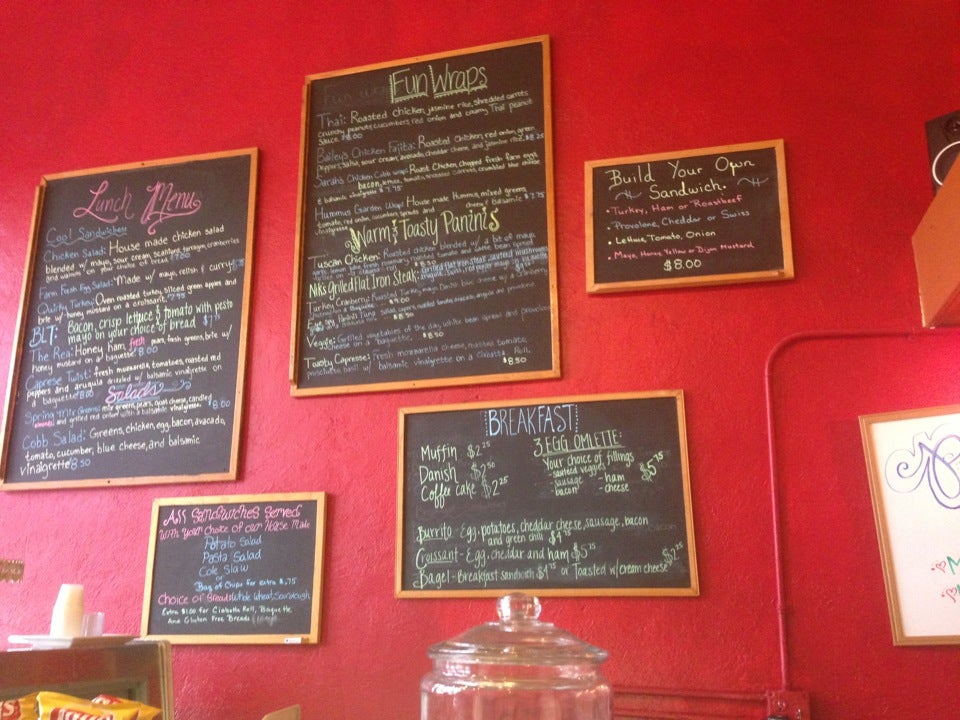 Lunch Menu
Cool Sandwiches
Chicken Salad: House made chicken salad
blended w/ mayo, sour cream, scallions, tarragon, cranberries
and walnuts on your choice of bread
Farm Fresh Egg Salad: Made w/ mayo, relish & curry
Quirky Turkey: Oven roasted turkey, sliced green apples and
brie w/ honey mustard on a croissant. 7.95
BLT: Bacon, crisp lettuce & tomato with pesto
mayo on your choice of bread
The Rea: Honey ham, fresh pears, fresh greens, brie w/
honey mustard on a baguette 8.00
Caprese Twist: fresh mozzarella, tomatoes, roasted red
peppers and arugula drizzled w/ balsamic vinaigrette on
a baguette 8.00
Salads
Spring Mix Greens: mix greens, pears, goat cheese, candied
almonds and grilled red onion with a balsamic vinaigrette. $8.00
Cobb Salad: Greens, chicken, egg, bacon, avocado,
tomato, cucumber, blue cheese, and balsamic
vinaigrette $8.50
Fun Wraps
Thai: Roasted chicken, jasmine rice, shredded carrots
crunchy peanuts, cucumbers red onion and creamy Thai peanut
sauce $8.00
Bailey's Chicken Fajita: Roasted Chicken, red onion, green
peppers, salsa, sour cream, avocado, cheddar cheese, and jasmine rice $8.25
Sarah's Chicken Cobb wrap: Roast Chicken, chopped fresh farm egg
bacon, lettuce, tomato, shredded carrots, crumbled blue cheese
& balsamic vinaigrette $7.75
Hummus Garden Wrap: House made Hummus, mixed greens,
tomato, red onion, cucumber, sprouts and cheese & balsamic $7.75
vinaigrette
Warm & Toasty Paninis
Tuscan Chicken: Roasted chicken blended w/ a bit of mayo
garlic, lemon juice, fresh rosemary, roasted tomato and white bean spread
$8.50
Nik's Grilled Flat Iron Steak:
Turkey Cranberry: Roasted Turkey, mayo, Danish blue cheese w/ a cranberry
on a baguette $9.00
Tuna salad, capers, roasted tomato, avocado, arugula and provolone
$8.50
Veggie: Grilled vegetables of the day, white bean spread and provolone
cheese on a baguette. $8.50
Toasty Caprese: Fresh mozzarella cheese, roasted tomato,
prosciutto, basil w/ balsamic vinaigrette on a ciabatta Roll.
$8.50
Build Your Own
Sandwich.
• Turkey, Ham or Roastbeef
• Provolone, Cheddar or Swiss
• Lettuce, Tomato, Onion
• Mayo, Honey, Yellow or Dijon Mustard
$8.00
BREAKFAST
Muffin $2.25
Danish $2.50
Coffee cake $2.25
3 EGG OMLETTE:
Your choice of fillings
- sauteed veggies
- sausage - ham
- bacon - cheese
$5.75
Burrito - Egg, potatoes, cheddar cheese, sausage, bacon
and green chili $4.75
Croissant - Egg, cheddar and ham $5.75
Bagel - Breakfast sandwich $4.75 or Toasted w/ cream cheese $2.25
All Sandwiches Served
with Your Choice of our House Made
Potato Salad
Pasta Salad
Cole Slaw
or
Bag of Chips for extra $.75
Choice of Breads Whole Wheat, Sourdough,
Extra $1.00 for Ciabatta Roll, Baguette
And Gluten Free Breads